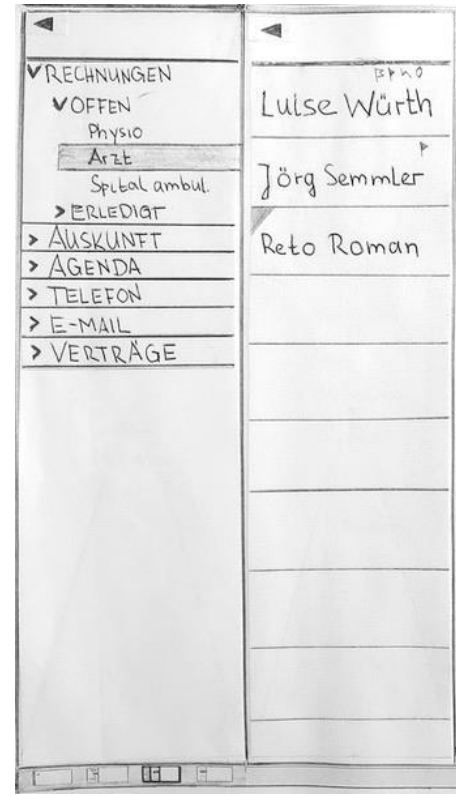 RECHNUNGEN
OFFEN
Physio
Arzt
Spital ambul.
ERLEDIGT
AUSKUNFT
AGENDA
TELEFON
E-MAIL
VERTRÄGE
Luise Würth
Jörg Semmler
Reto Roman